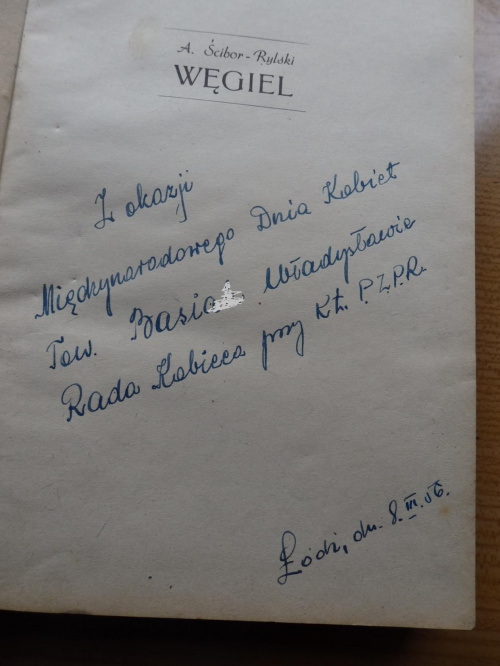 A. Ścibor-Rylski
WĘGIEL
Z okazji
Międzynarodowego Dnia Kobiet
Tow. Władysławie
Rada Kobieca przy Kł. P.Z.P.R.
Łódź, dn. 8.III.56.